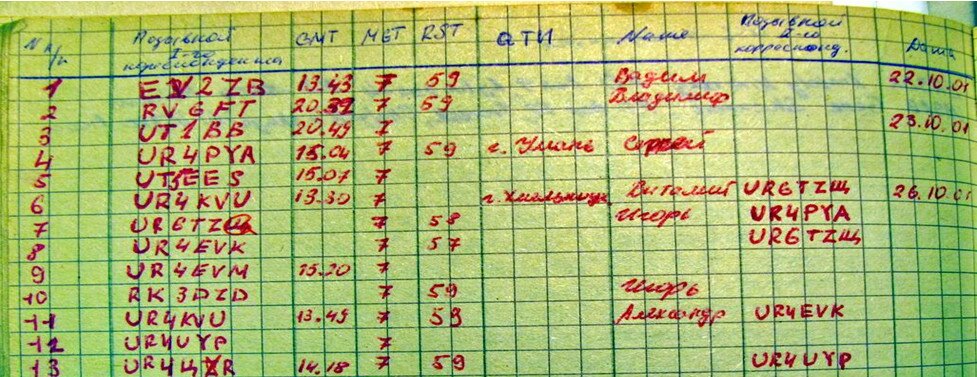 N п/п Позывной 1-го корреспондента GMT MET RST QTH Name Позывной 2-го корреспонд. Дата
1 EV2ZB 13.43 7 59 Вадим 22.10.01
2 RV6FT 20.39 7 59 Владимир
3 UT1BB 20.49 7 23.10.01
4 UR4PYA 15.04 7 59 г. Умань Сергей
5 UT5EES 15.07 7
6 UR4KVU 13.30 7 Виталий UR6TZЩ 26.10.01
7 UR6TZЩ 7 58 Игорь UR4PYA
8 UR4EVK 7 57 UR6TZЩ
9 UR4EVM 15.20 7
10 RK3DZD 7 59 Игорь
11 UR4KVU 13.49 7 59 Александр UR4EVK
12 UR4UYP 7
13 UR4ЦR 14.18 7 59 UR4UYP